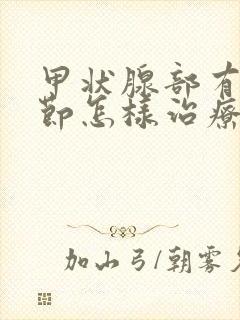 甲状腺部有
節怎樣治療
加山弓/朝霧